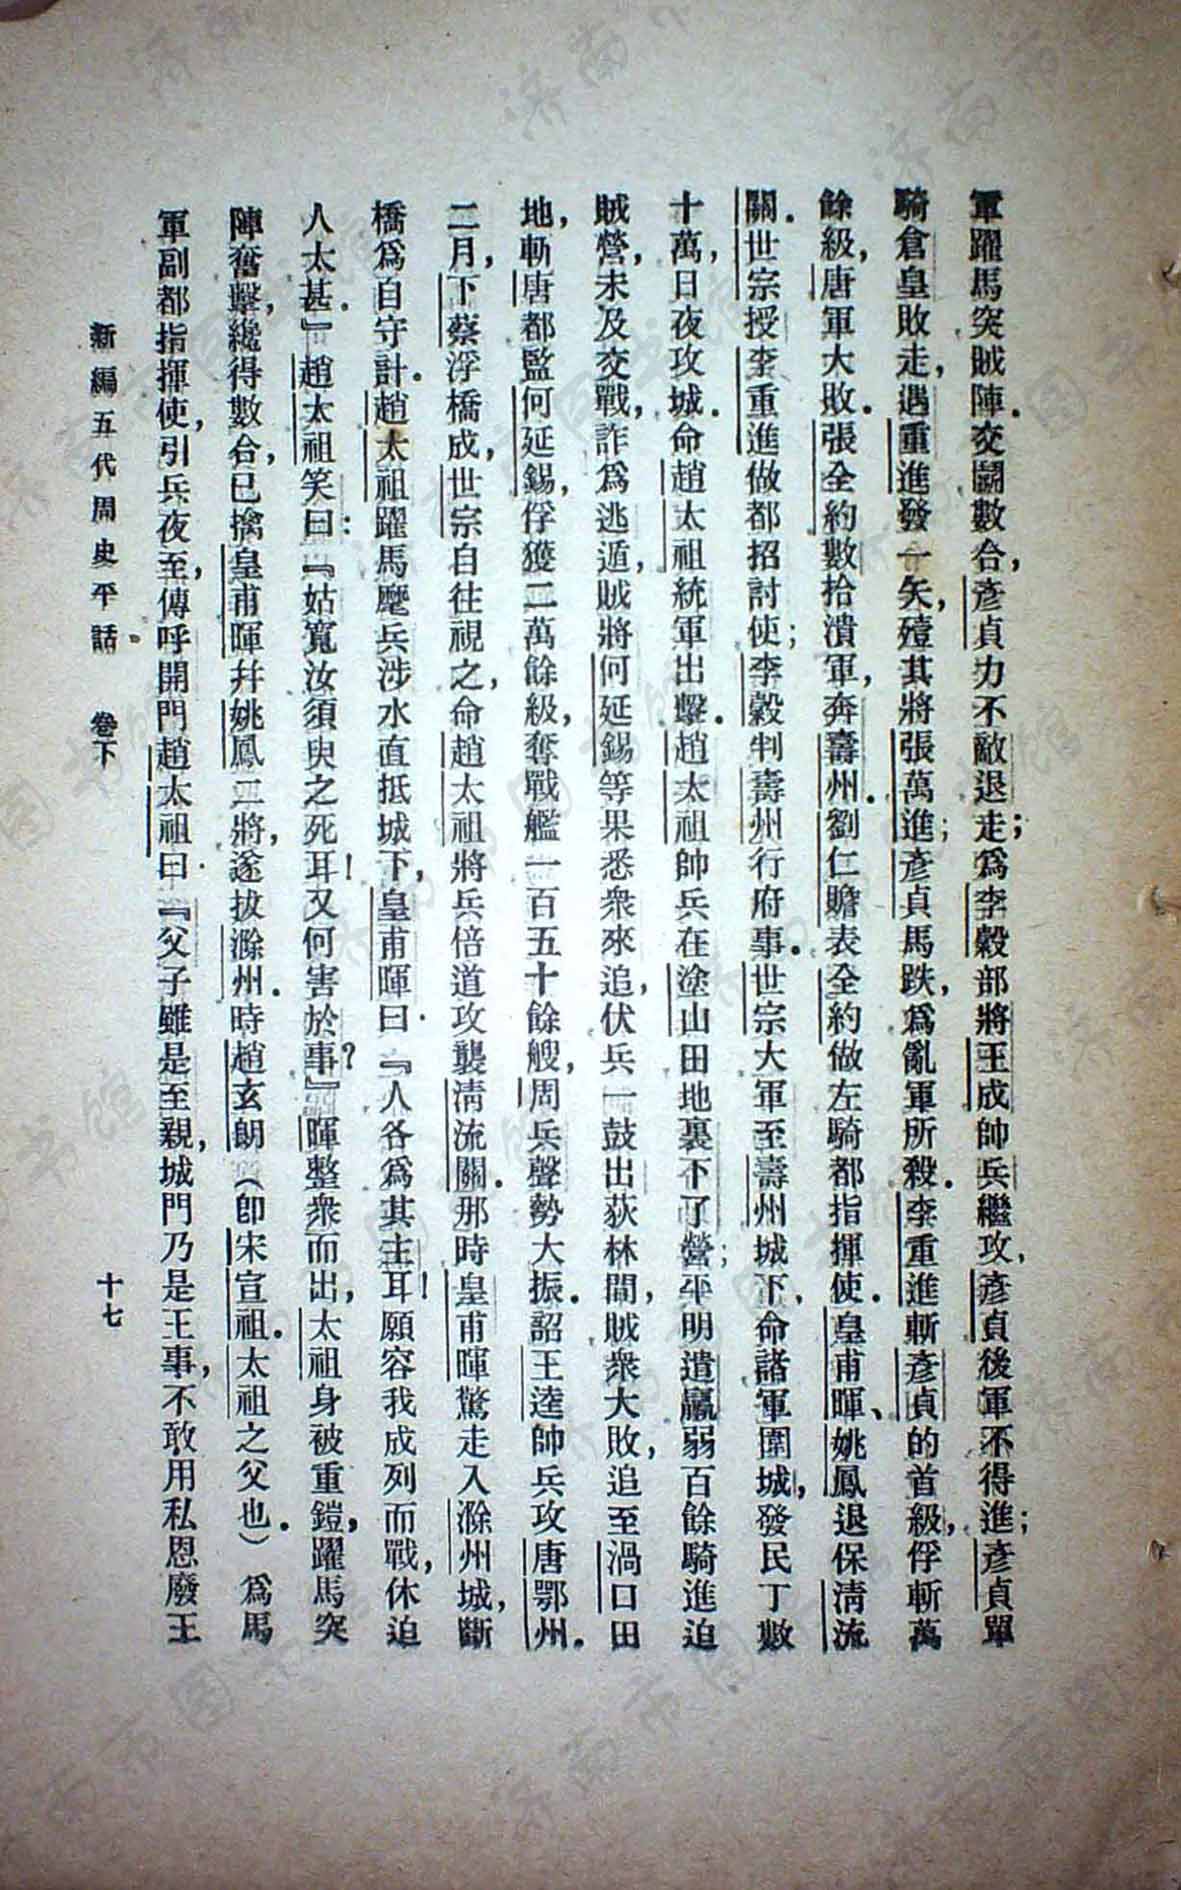 軍躍馬突賊陣．交鬪數合，彥貞力不敵退走；爲李穀部將王成帥兵繼攻，彥貞後軍不得進；彥貞單
騎倉皇敗走，遇重進發一矢，殪其將張萬進；彥貞馬跌，爲亂軍所殺．李重進斬彥貞的首級，俘斬萬
餘級，唐軍大敗．張全約數拾潰軍，奔壽州．劉仁贍表全約做左騎都指揮使．皇甫暉、姚鳳退保淸流
關．世宗授李重進做都招討使；李穀判壽州行府事．世宗大軍至壽州城下，命諸軍圍城，發民丁數
十萬，日夜攻城．命趙太祖統軍出擊．趙太祖帥兵在塗山田地裏下了營；平明遣羸弱百餘騎進迫
賊營，未及交戰，詐爲逃遁，賊將何延錫等果悉衆來追，伏兵一鼓出荻林間，賊衆大敗，追至渦口田
地，斬唐都監何延錫，俘獲二萬餘級，奪戰艦一百五十餘艘，周兵聲勢大振．詔王逵帥兵攻唐鄂州．
二月，下蔡浮橋成，世宗自往視之，命趙太祖將兵倍道攻襲淸流關．那時皇甫暉驚走入滁州城，斷
橋爲自守計．趙太祖躍馬麾兵涉水直抵城下，皇甫暉曰：『人各爲其主耳！願容我成列而戰，休迫
人太甚．』趙太祖笑曰：『姑寬汝須臾之死耳！又何害於事？』暉整衆而出，太祖身被重鎧，躍馬突
陣奮擊，纔得數合，已擒皇甫暉幷姚鳳二將，遂拔滁州．時趙玄朗（卽宋宣祖．太祖之父也．）爲馬
軍副都指揮使，引兵夜至，傳呼開門．趙太祖曰：『父子雖是至親，城門乃是王事，不敢用私恩廢王
新編五代周史平話　卷下　十七
济南市图书馆